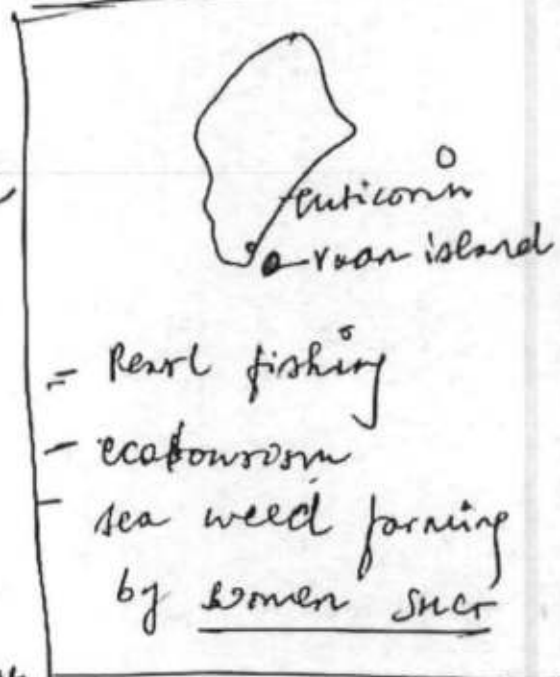 tuticorin
vaan island
- Pearl fishing
- ecotourism
- sea weed farming
by women